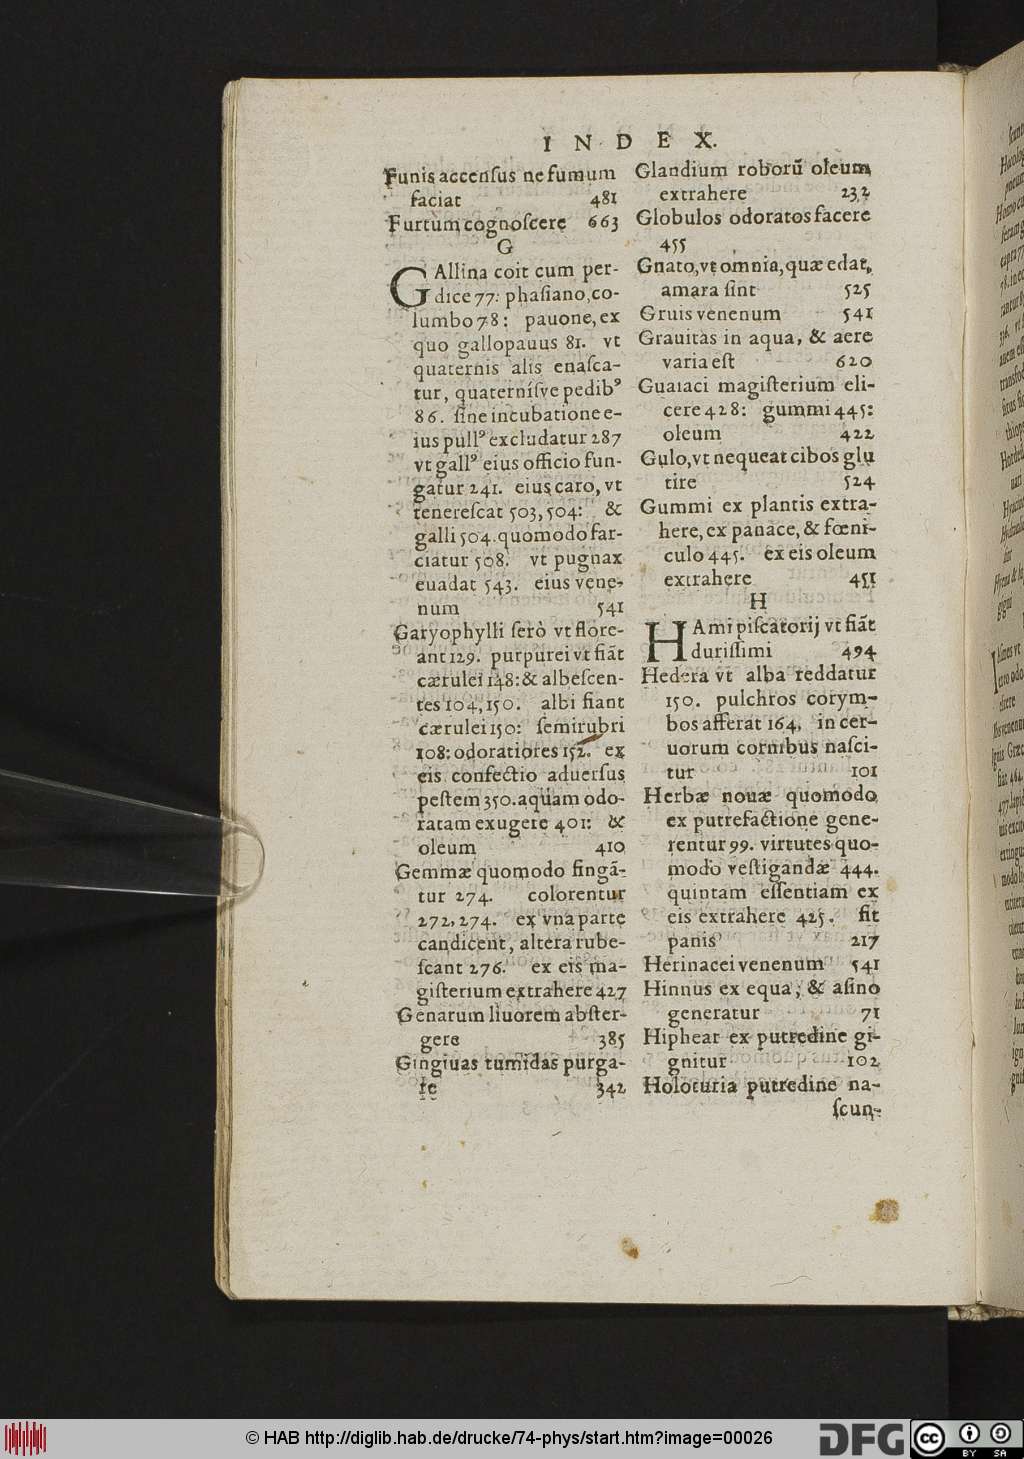 INDEX.
Funis accensus ne fumum
faciat 481
Furtùm cognoscere 663
G
GAllina coit cum per-
dice 77: phasiano, co-
lumbo 78: pauone, ex
quo gallopauus 81. vt
quaternis alis enasca-
tur, quaternísve pedibꝰ
86. sine incubatione e-
ius pullꝰ excludatur 287
vt gallꝰ eius officio fun-
gatur 241. eius caro, vt
tenerescat 503, 504: &
galli 504. quomodo far-
ciatur 508. vt pugnax
euadat 543. eius vene-
num 541
Garyophylli serò vt flore-
ant 129. purpurei vt fiãt
cærulei 148: & albescen-
tes 104, 150. albi fiant
cærulei 150: semirubri
108: odoratiores 152. ex
eis confectio aduersus
pestem 350. aquam odo-
ratam exugere 401: &
oleum 410
Gemmæ quomodo fingã-
tur 274. colorentur
272, 274. ex vna parte
candicent, altera rube-
scant 276. ex eis ma-
gisterium extrahere 427
Genarum liuorem abster-
gere 385
Gingiuas tumidas purga-
re 342
Glandium roborũ oleum
extrahere 232
Globulos odoratos facere
455
Gnato, vt omnia, quæ edat,
amara sint 525
Gruis venenum 541
Grauitas in aqua, & aere
varia est 620
Guaiaci magisterium eli-
cere 428: gummi 445:
oleum 422
Gulo, vt nequeat cibos glu
tire 524
Gummi ex plantis extra-
here, ex panace, & fœni-
culo 445. ex eis oleum
extrahere 451
H
HAmi piscatorij vt fiãt
durissimi 494
Hedera vt alba reddatur
150. pulchros corym-
bos afferat 164, in cer-
uorum cornibus nasci-
tur 101
Herbæ nouæ quomodo
ex putrefactione gene-
rentur 99. virtutes quo-
modo vestigandæ 444.
quintam essentiam ex
eis extrahere 425. fit
panis 217
Herinacei venenum 541
Hinnus ex equa, & asino
generatur 71
Hiphear ex putredine gi-
gnitur 102
Holoturia putredine na-
scun-
© HAB http://diglib.hab.de/drucke/74-phys/start.htm?image=00026
DFG
cc
BY SA